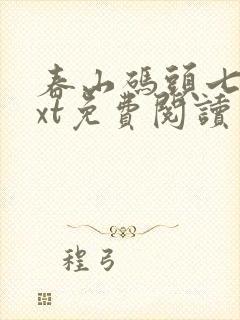 春山碼頭七
xt免費閱讀
程弓